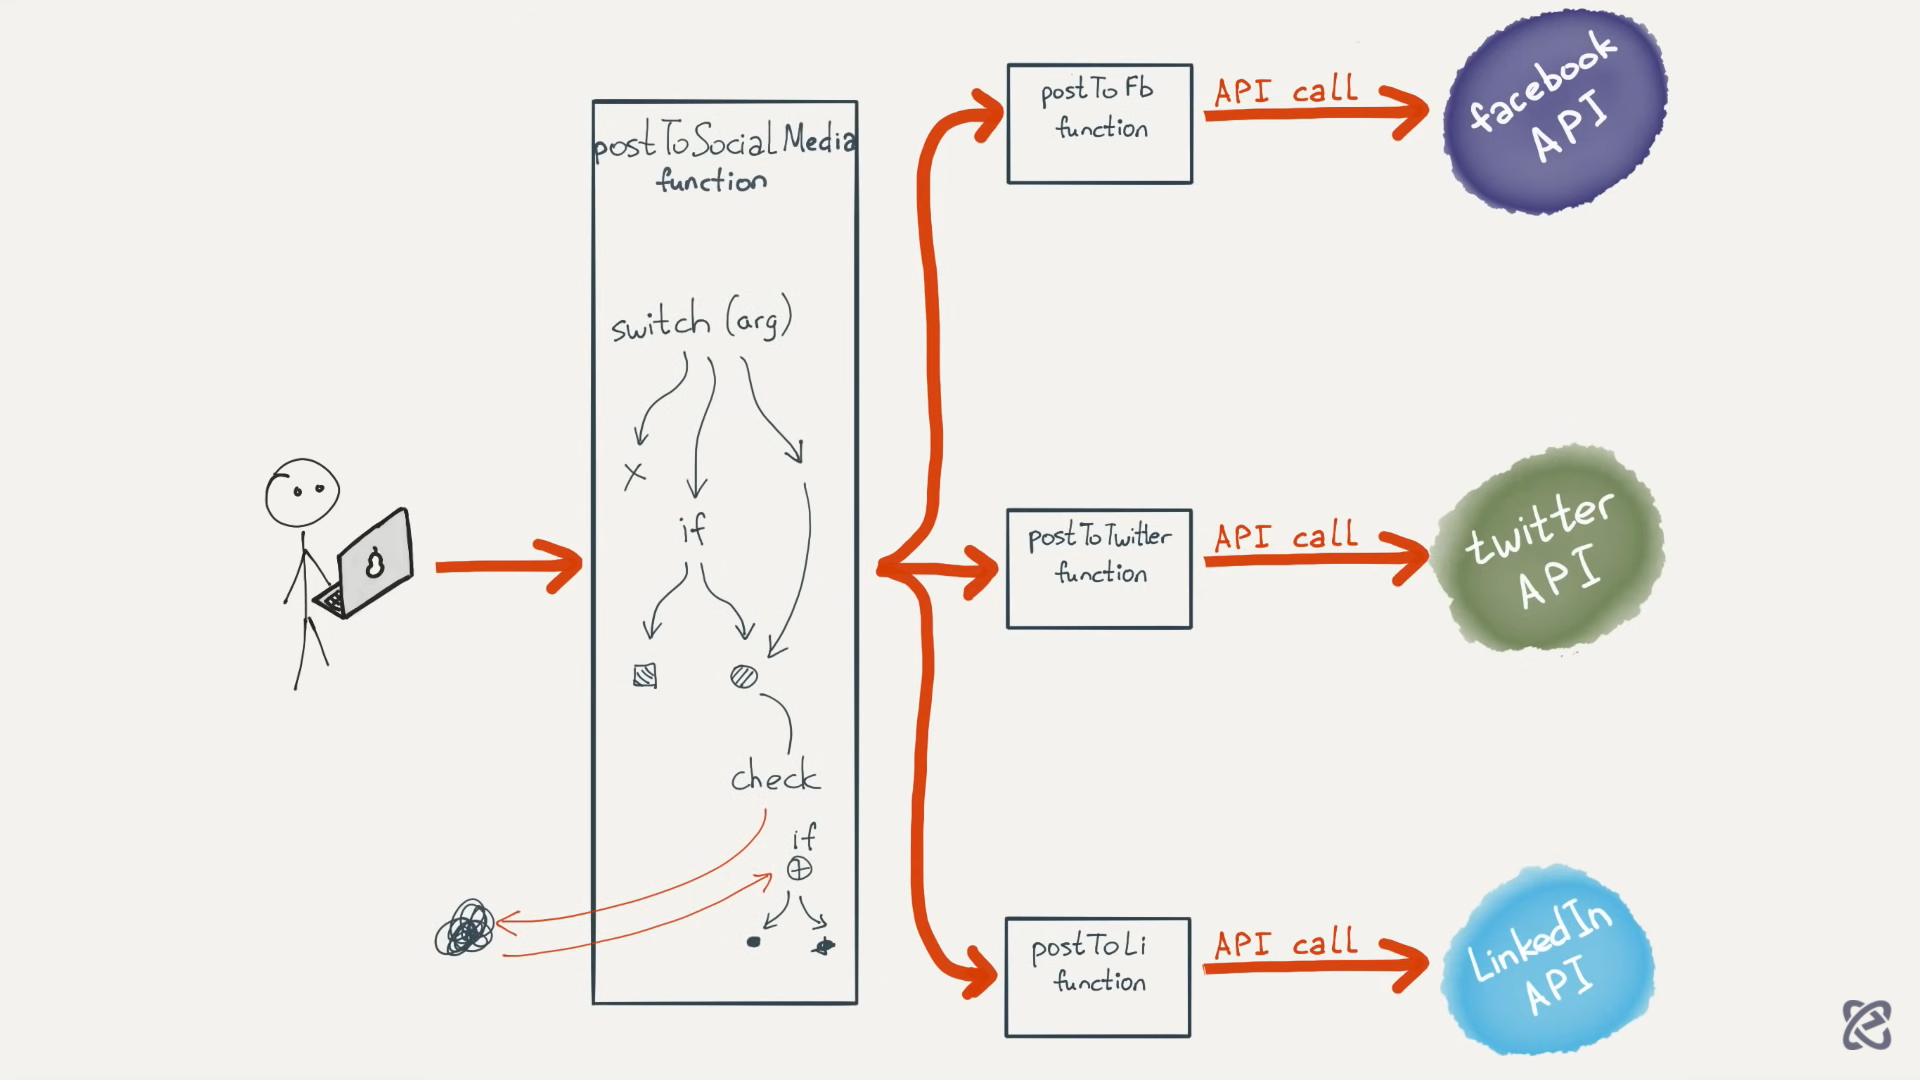 postToSocialMedia
function
switch (arg)
if
check
if
postToFb
function
API call
facebook
API
postToTwitter
function
API call
twitter
API
postToLi
function
API call
LinkedIn
API